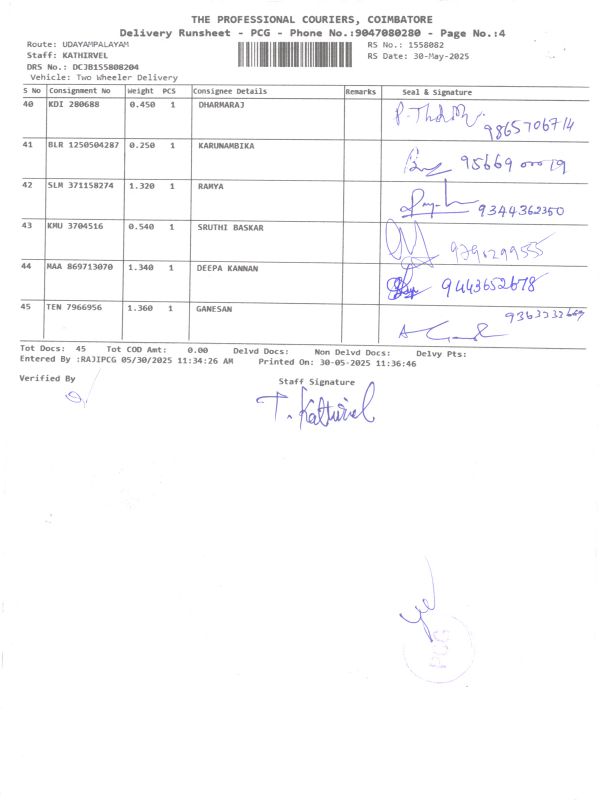 THE PROFESSIONAL COURIERS, COIMBATORE
Delivery Runsheet - PCG - Phone No.:9047080280 - Page No.:4
Route: UDAYAMPALAYAM RS No.: 1558082
Staff: KATHIRVEL RS Date: 30-May-2025
DRS No.: DCJB155808204
Vehicle: Two Wheeler Delivery
S No Consignment No Weight PCS Consignee Details Remarks Seal & Signature
40 KDI 280688 0.450 1 DHARMARAJ
9865706714
41 BLR 1250504287 0.250 1 KARUNAMBIKA
95669 000 19
42 SLM 371158274 1.320 1 RAMYA
9344362350
43 KMU 3704516 0.540 1 SRUTHI BASKAR
44 MAA 869713070 1.340 1 DEEPA KANNAN
9443652678
45 TEN 7966956 1.360 1 GANESAN
Tot Docs: 45 Tot COD Amt: 0.00 Delvd Docs: Non Delvd Docs: Delvy Pts:
Entered By :RAJIPCG 05/30/2025 11:34:26 AM Printed On: 30-05-2025 11:36:46
Verified By Staff Signature
T. Kathirvel
PCG